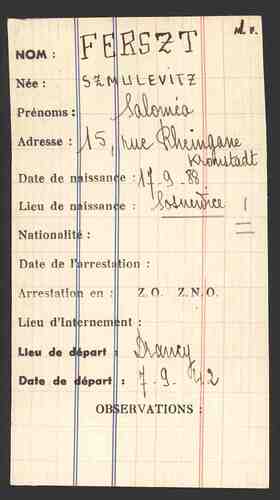 M. P.
NOM : FERSZT
Née : SZMULEVITZ
Prénoms : Saloméa
Adresse : 15, rue Rheingane
Kronstadt
Date de naissance : 17-9-88
Lieu de naissance : Sosnevice
Nationalité :
Date de l'arrestation :
Arrestation en : Z.O. Z.N.O.
Lieu d'Internement :
Lieu de départ : Drancy
Date de départ : 7.9.42
OBSERVATIONS :